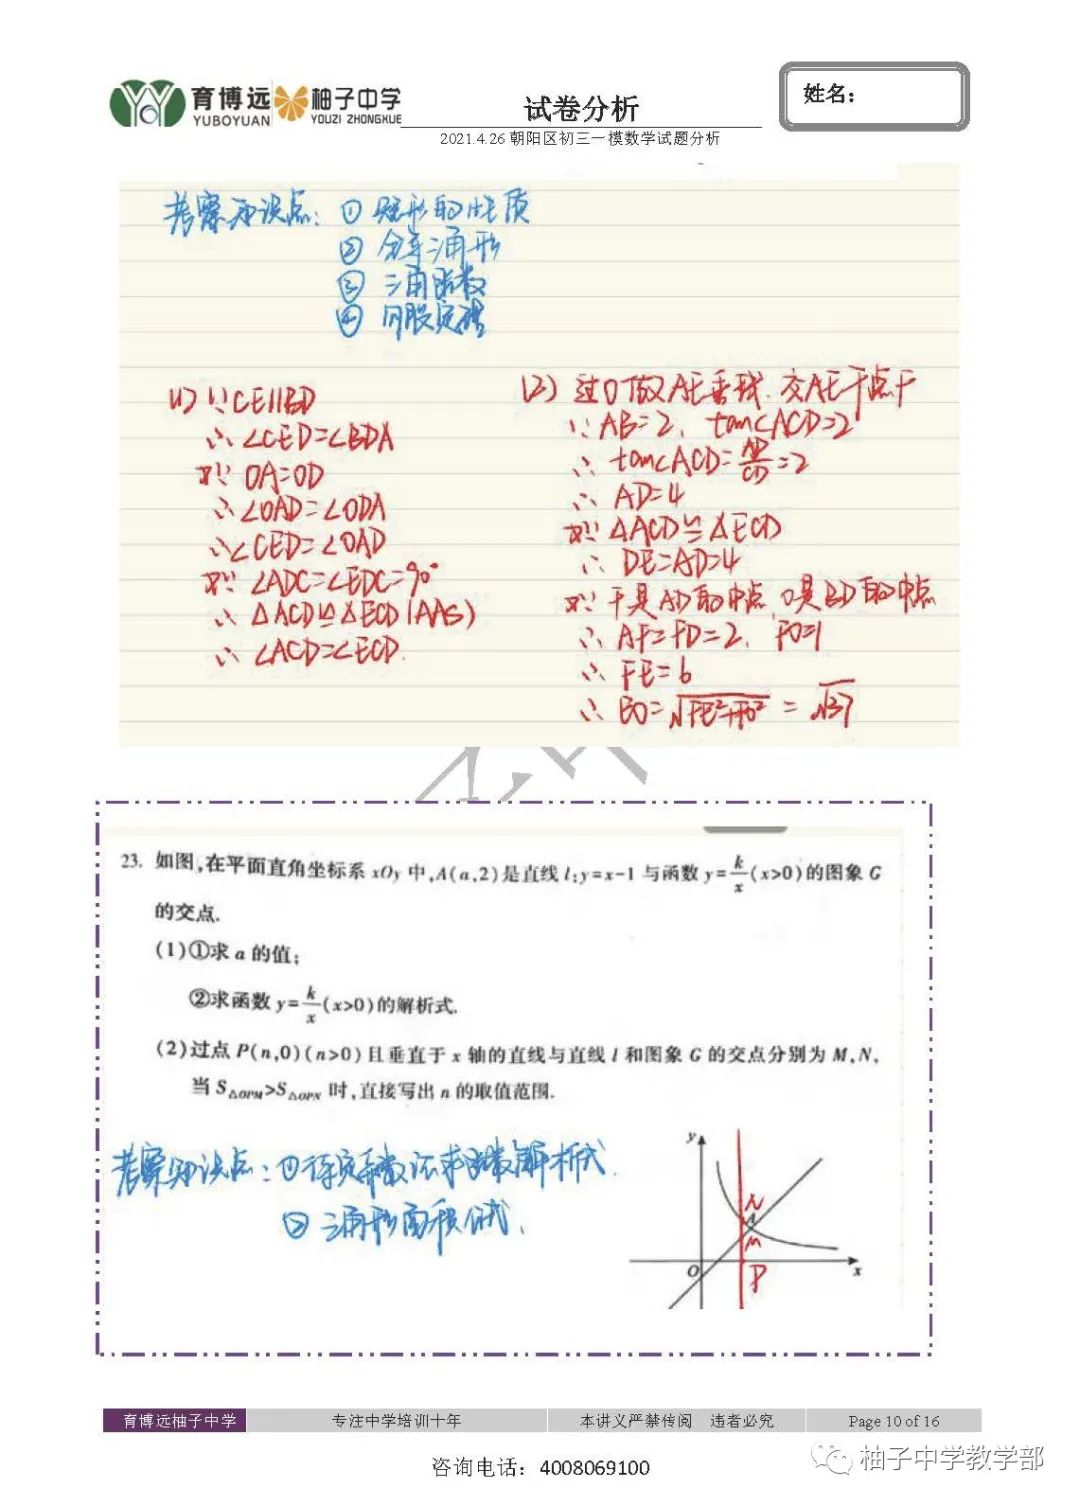 育博远
YUBOYUAN
柚子中学
YOUZI ZHONGXUE
试卷分析
姓名：
2021.4.26 朝阳区初三一模数学试题分析
考察知识点：① 矩形的性质
② 全等三角形
③ 三角函数
④ 勾股定理
(1) ∵CE∥BD
∴∠CED=∠BDA
又∵OA=OD
∴∠OAD=∠ODA
∴∠CED=∠OAD
又∵∠ADC=∠EDC=90°
∴△ACD≌△ECD(AAS)
∴∠ACD=∠ECD.
(2) 过O做AE垂线.交AE于点F
∵AB=2, tan∠ACD=2
∴tan∠ACD=AD/CD=2
∴AD=4
又∵△ACD≌△ECD
∴DE=AD=4
又∵F是AD的中点,O是BD的中点
∴AF=FD=2, FO=1
∴FE=6
∴EO=√(FE²+FO²)=√37
23. 如图,在平面直角坐标系 xOy 中,A(a,2)是直线 l:y=x-1 与函数 y=k/x(x>0)的图象 G
的交点.
(1)①求 a 的值;
②求函数 y=k/x(x>0)的解析式.
(2)过点 P(n,0)(n>0)且垂直于 x 轴的直线与直线 l 和图象 G 的交点分别为 M,N,
当 S△OPM>S△OPN 时,直接写出 n 的取值范围.
考察知识点：①待定系数法求函数解析式.
② 三角形面积公式.
y
N
A
M
O
P
x
育博远柚子中学
专注中学培训十年
本讲义严禁传阅 违者必究
Page 10 of 16
咨询电话：4008069100
柚子中学教学部